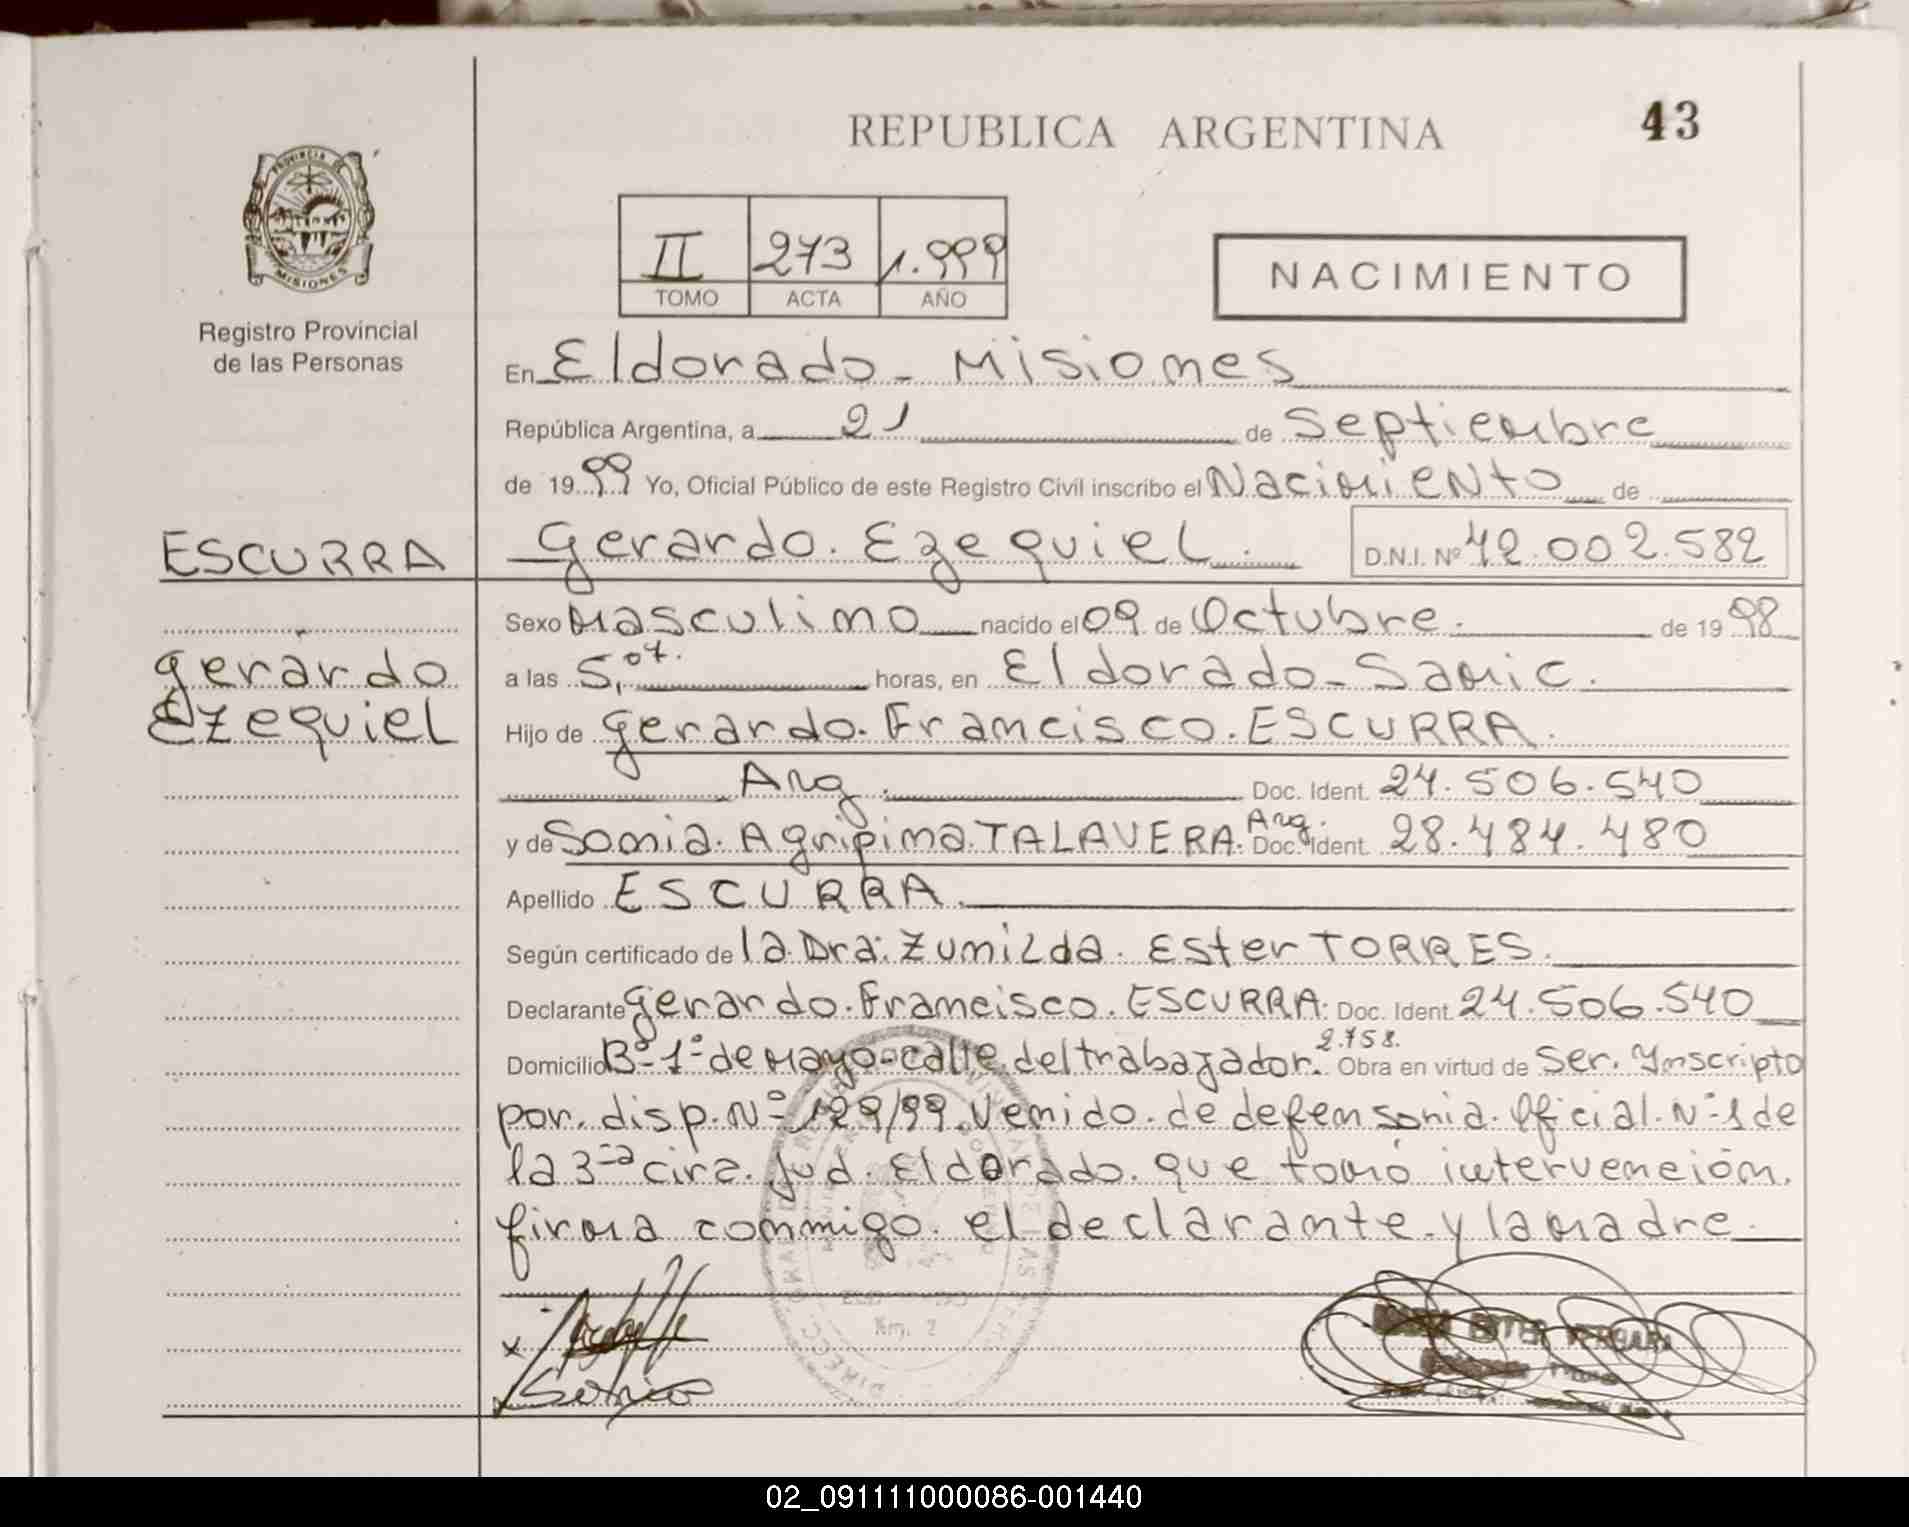 REPUBLICA ARGENTINA
43
PROVINCIA DE
MISIONES
Registro Provincial
de las Personas
II 273 1.999
TOMO ACTA AÑO
NACIMIENTO
En Eldorado - Misiones
República Argentina, a 21 de Septiembre
de 1999 Yo, Oficial Público de este Registro Civil inscribo el Nacimiento de
ESCURRA
Gerardo Ezequiel
Gerardo. Ezequiel. D.N.I. Nº 42.002.582
Sexo Masculino nacido el 09 de Octubre. de 1998
a las 5,07. horas, en Eldorado - Samic.
Hijo de Gerardo. Francisco. ESCURRA.
Arg. Doc. Ident. 24.506.540
y de Sonia. Agripina. TALAVERA. Arg. Doc. Ident. 28.484.480
Apellido ESCURRA.
Según certificado de la Dra: Zunilda. Ester TORRES.
Declarante Gerardo. Francisco. ESCURRA. Doc. Ident. 24.506.540
Domicilio Bº- 1º de Mayo - calle del trabajador. 2.758. Obra en virtud de Ser. Ynscripto
por. disp. Nº 129/99. Venido. de defensoria. Oficial. Nº 1 de
la 3ª circ. Jud. Eldorado. que tomó intervención.
firma conmigo. el declarante. y la madre.
x
Sonia
ESTER VERGARA
02_091111000086-001440